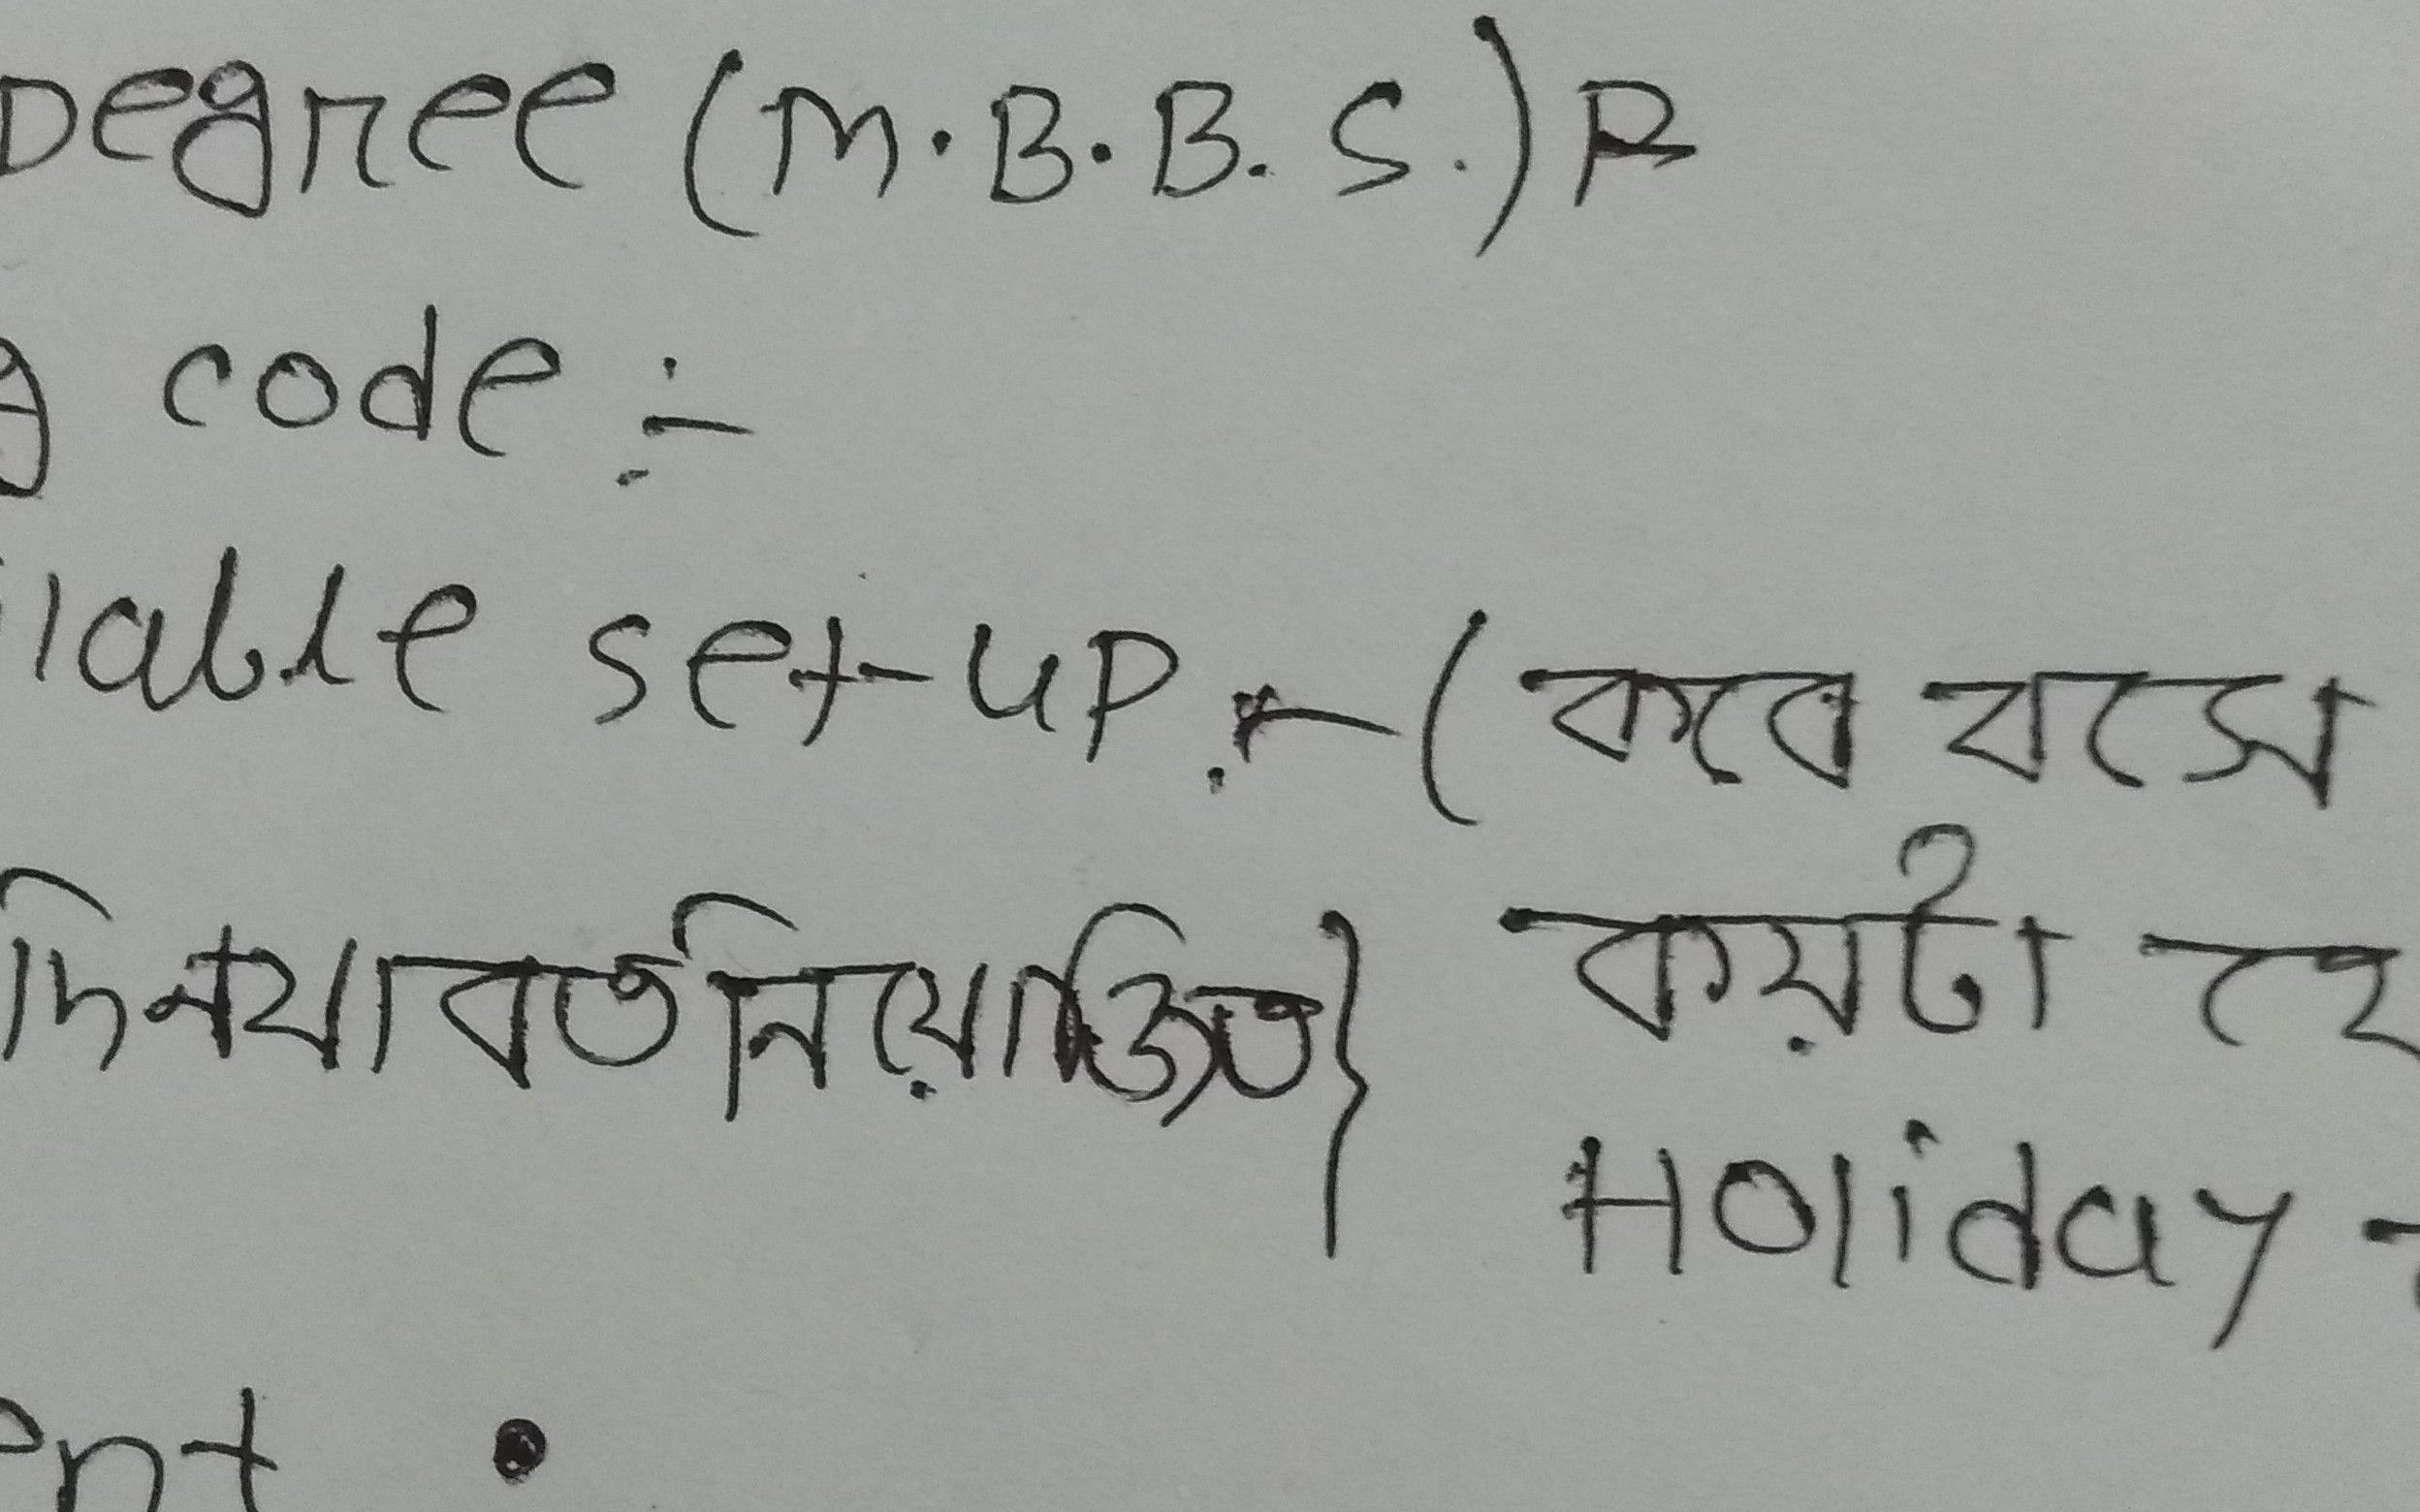 Degree (M.B.B.S.) R
code :-
set-up :- (কবে বসে
দিন যাবত নিয়োজিত} কয়টা
Holiday -